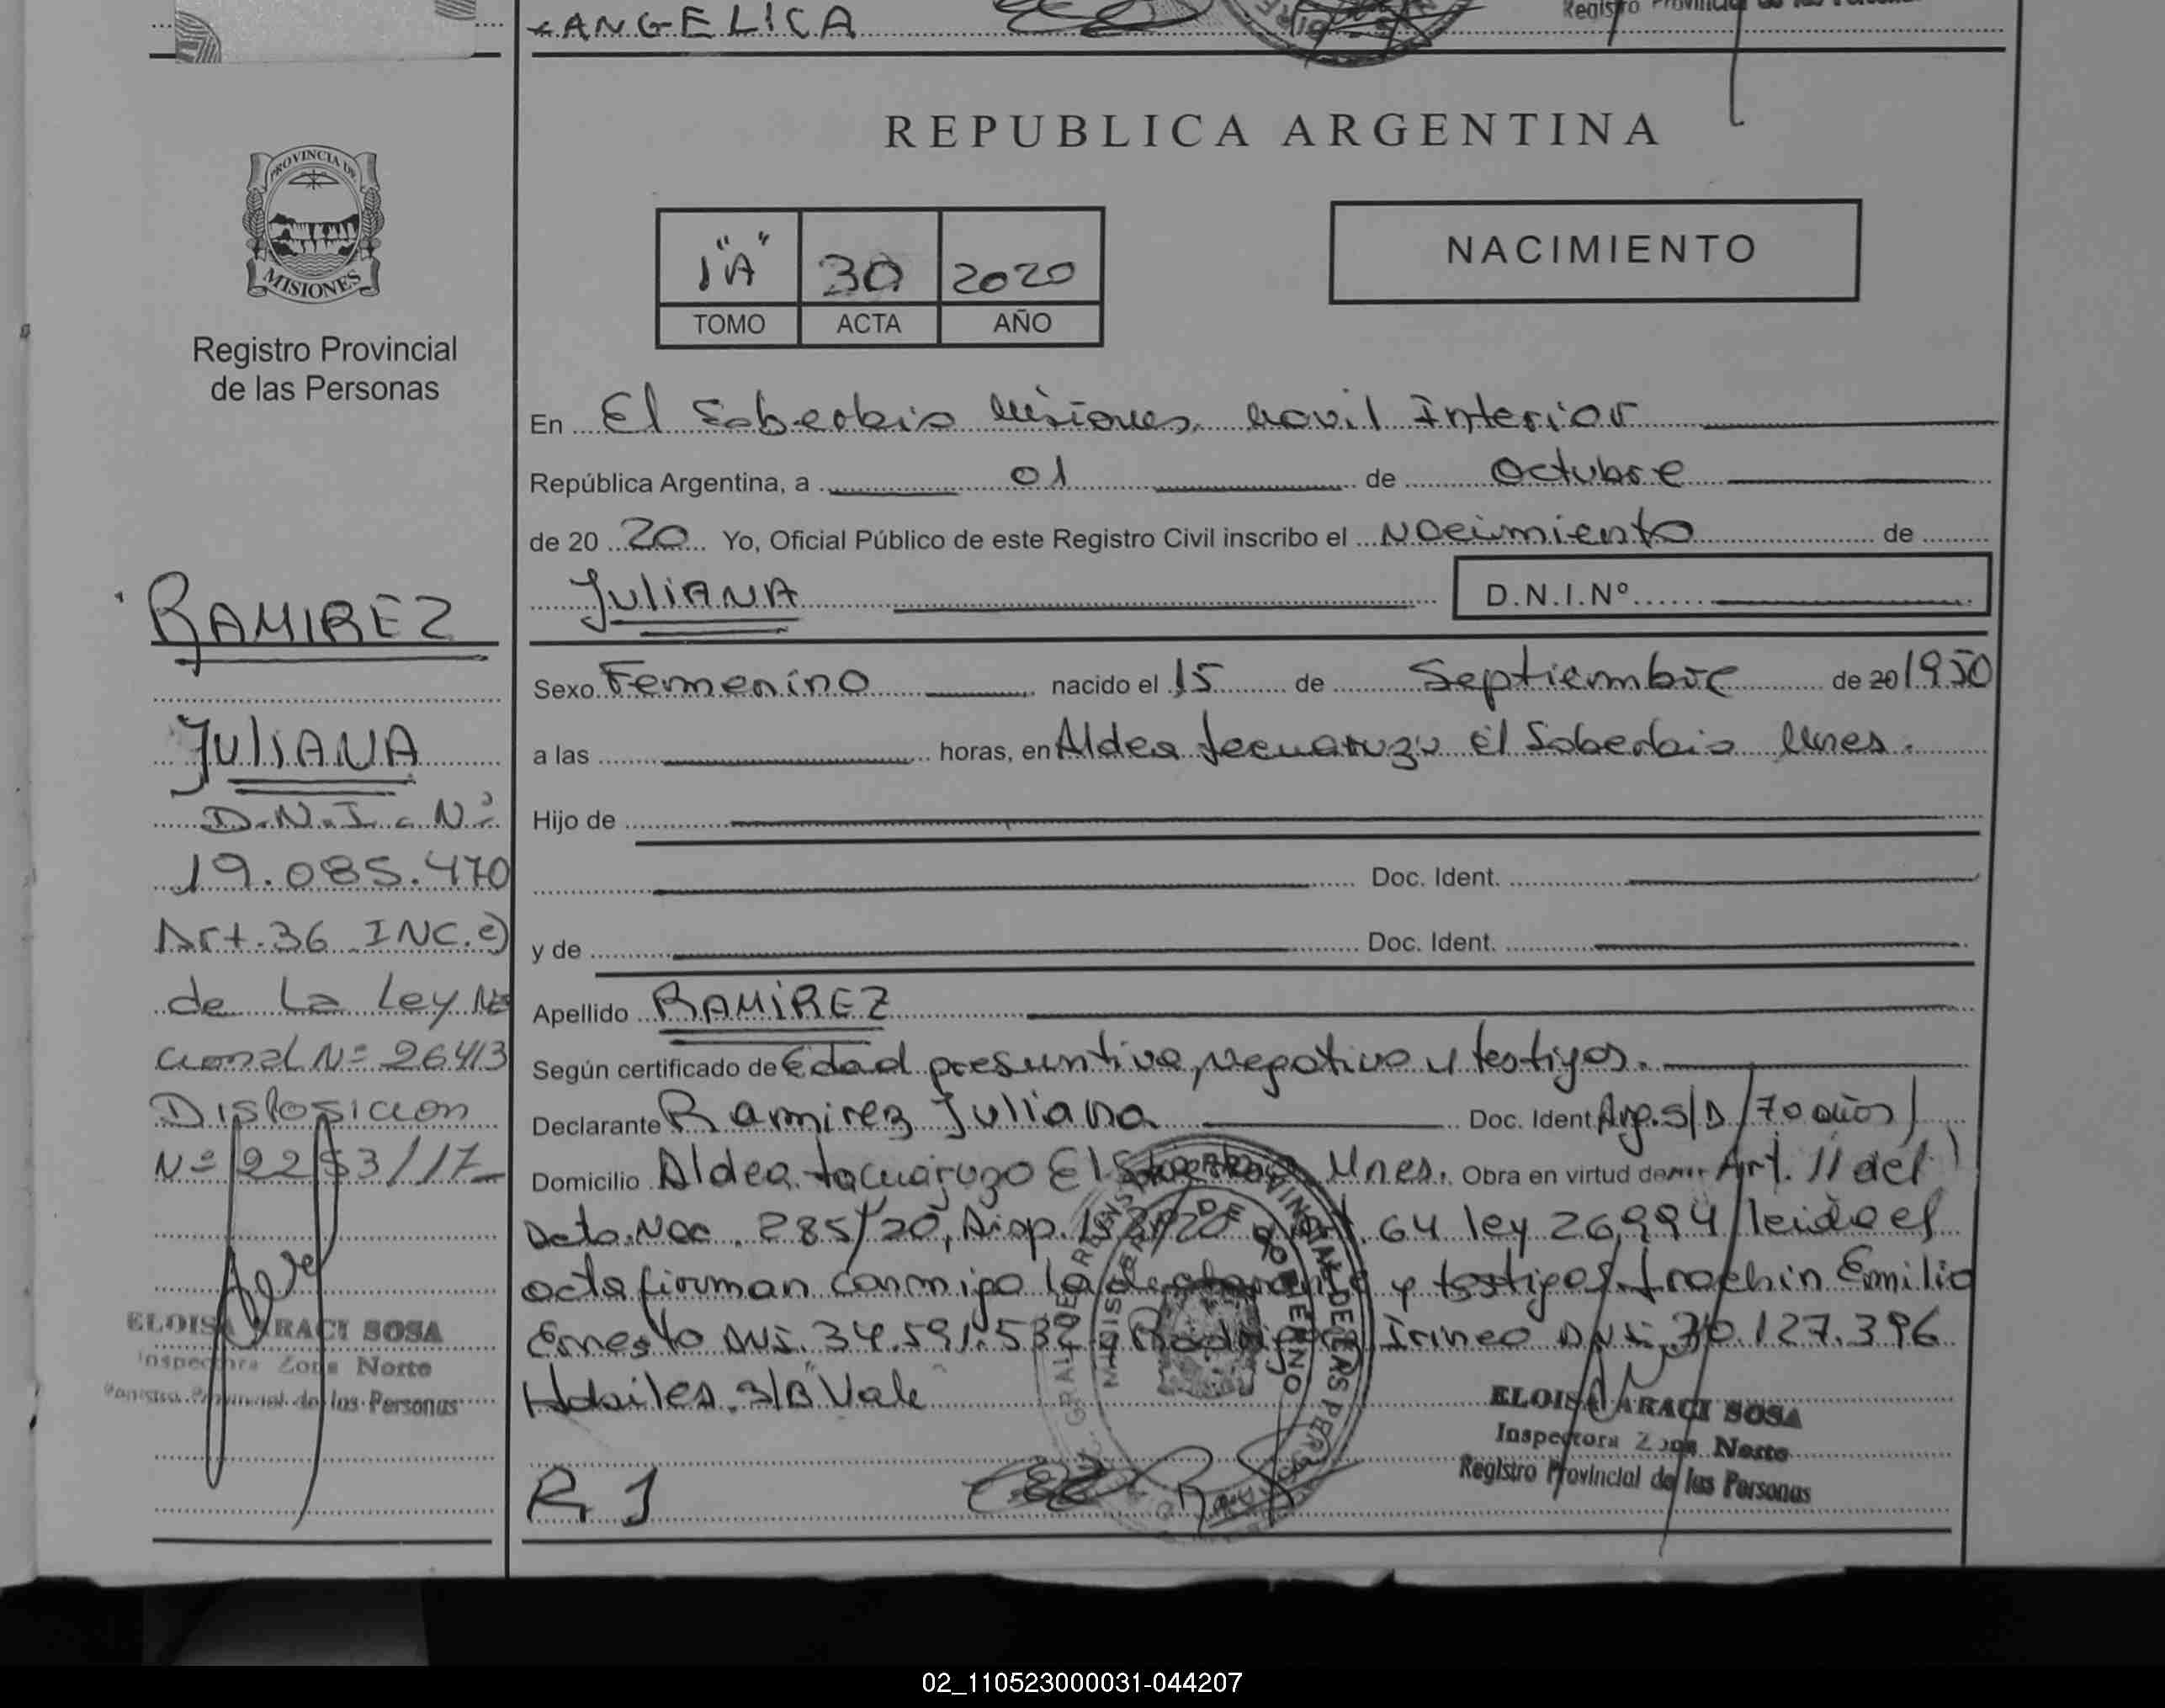 ANGELICA
Registro Provincial de las Personas
REPUBLICA ARGENTINA
PROVINCIA DE
MISIONES
Registro Provincial
de las Personas
1 "A" 30 2020
TOMO ACTA AÑO
NACIMIENTO
En El Soberbio Misiones, Movil Interior
República Argentina, a 01 de Octubre
de 20 20 Yo, Oficial Público de este Registro Civil inscribo el Nacimiento de
JULIANA D.N.I.Nº
Sexo Femenino nacido el 15 de Septiembre de 20 1950
a las horas, en Aldea Tecuaruzu El Soberbio Mnes.
Hijo de
Doc. Ident.
y de Doc. Ident.
Apellido RAMIREZ
Según certificado de Edad presuntiva, negativo y testigos.
Declarante Ramirez Juliana Doc. Ident Arg. S/D /70 años/
Domicilio Aldea tacuaruzo El Mnes. Obra en virtud de Art. 11 del
Dcto. Nac. 285/20, Disp. 64 ley 26,994/ leida el
acta firman conmigo la declarante y testigos Emilio
Ernesto DNI. 34.591.532 y Rodriguez Irineo DNI. 127.396
S/B "Vale"
R J
ELOISA ARACI SOSA
Inspectora Zona Norte
Registro Provincial de las Personas
RAMIREZ
JULIANA
D.N.I. Nº
19.085.470
Art. 36 INC. e)
de La Ley Na
cional Nº 26413
Disposicion
Nº 2253/17
ELOISA ARACI SOSA
Inspectora Zona Norte
Registro Provincial de las Personas
02_110523000031-044207